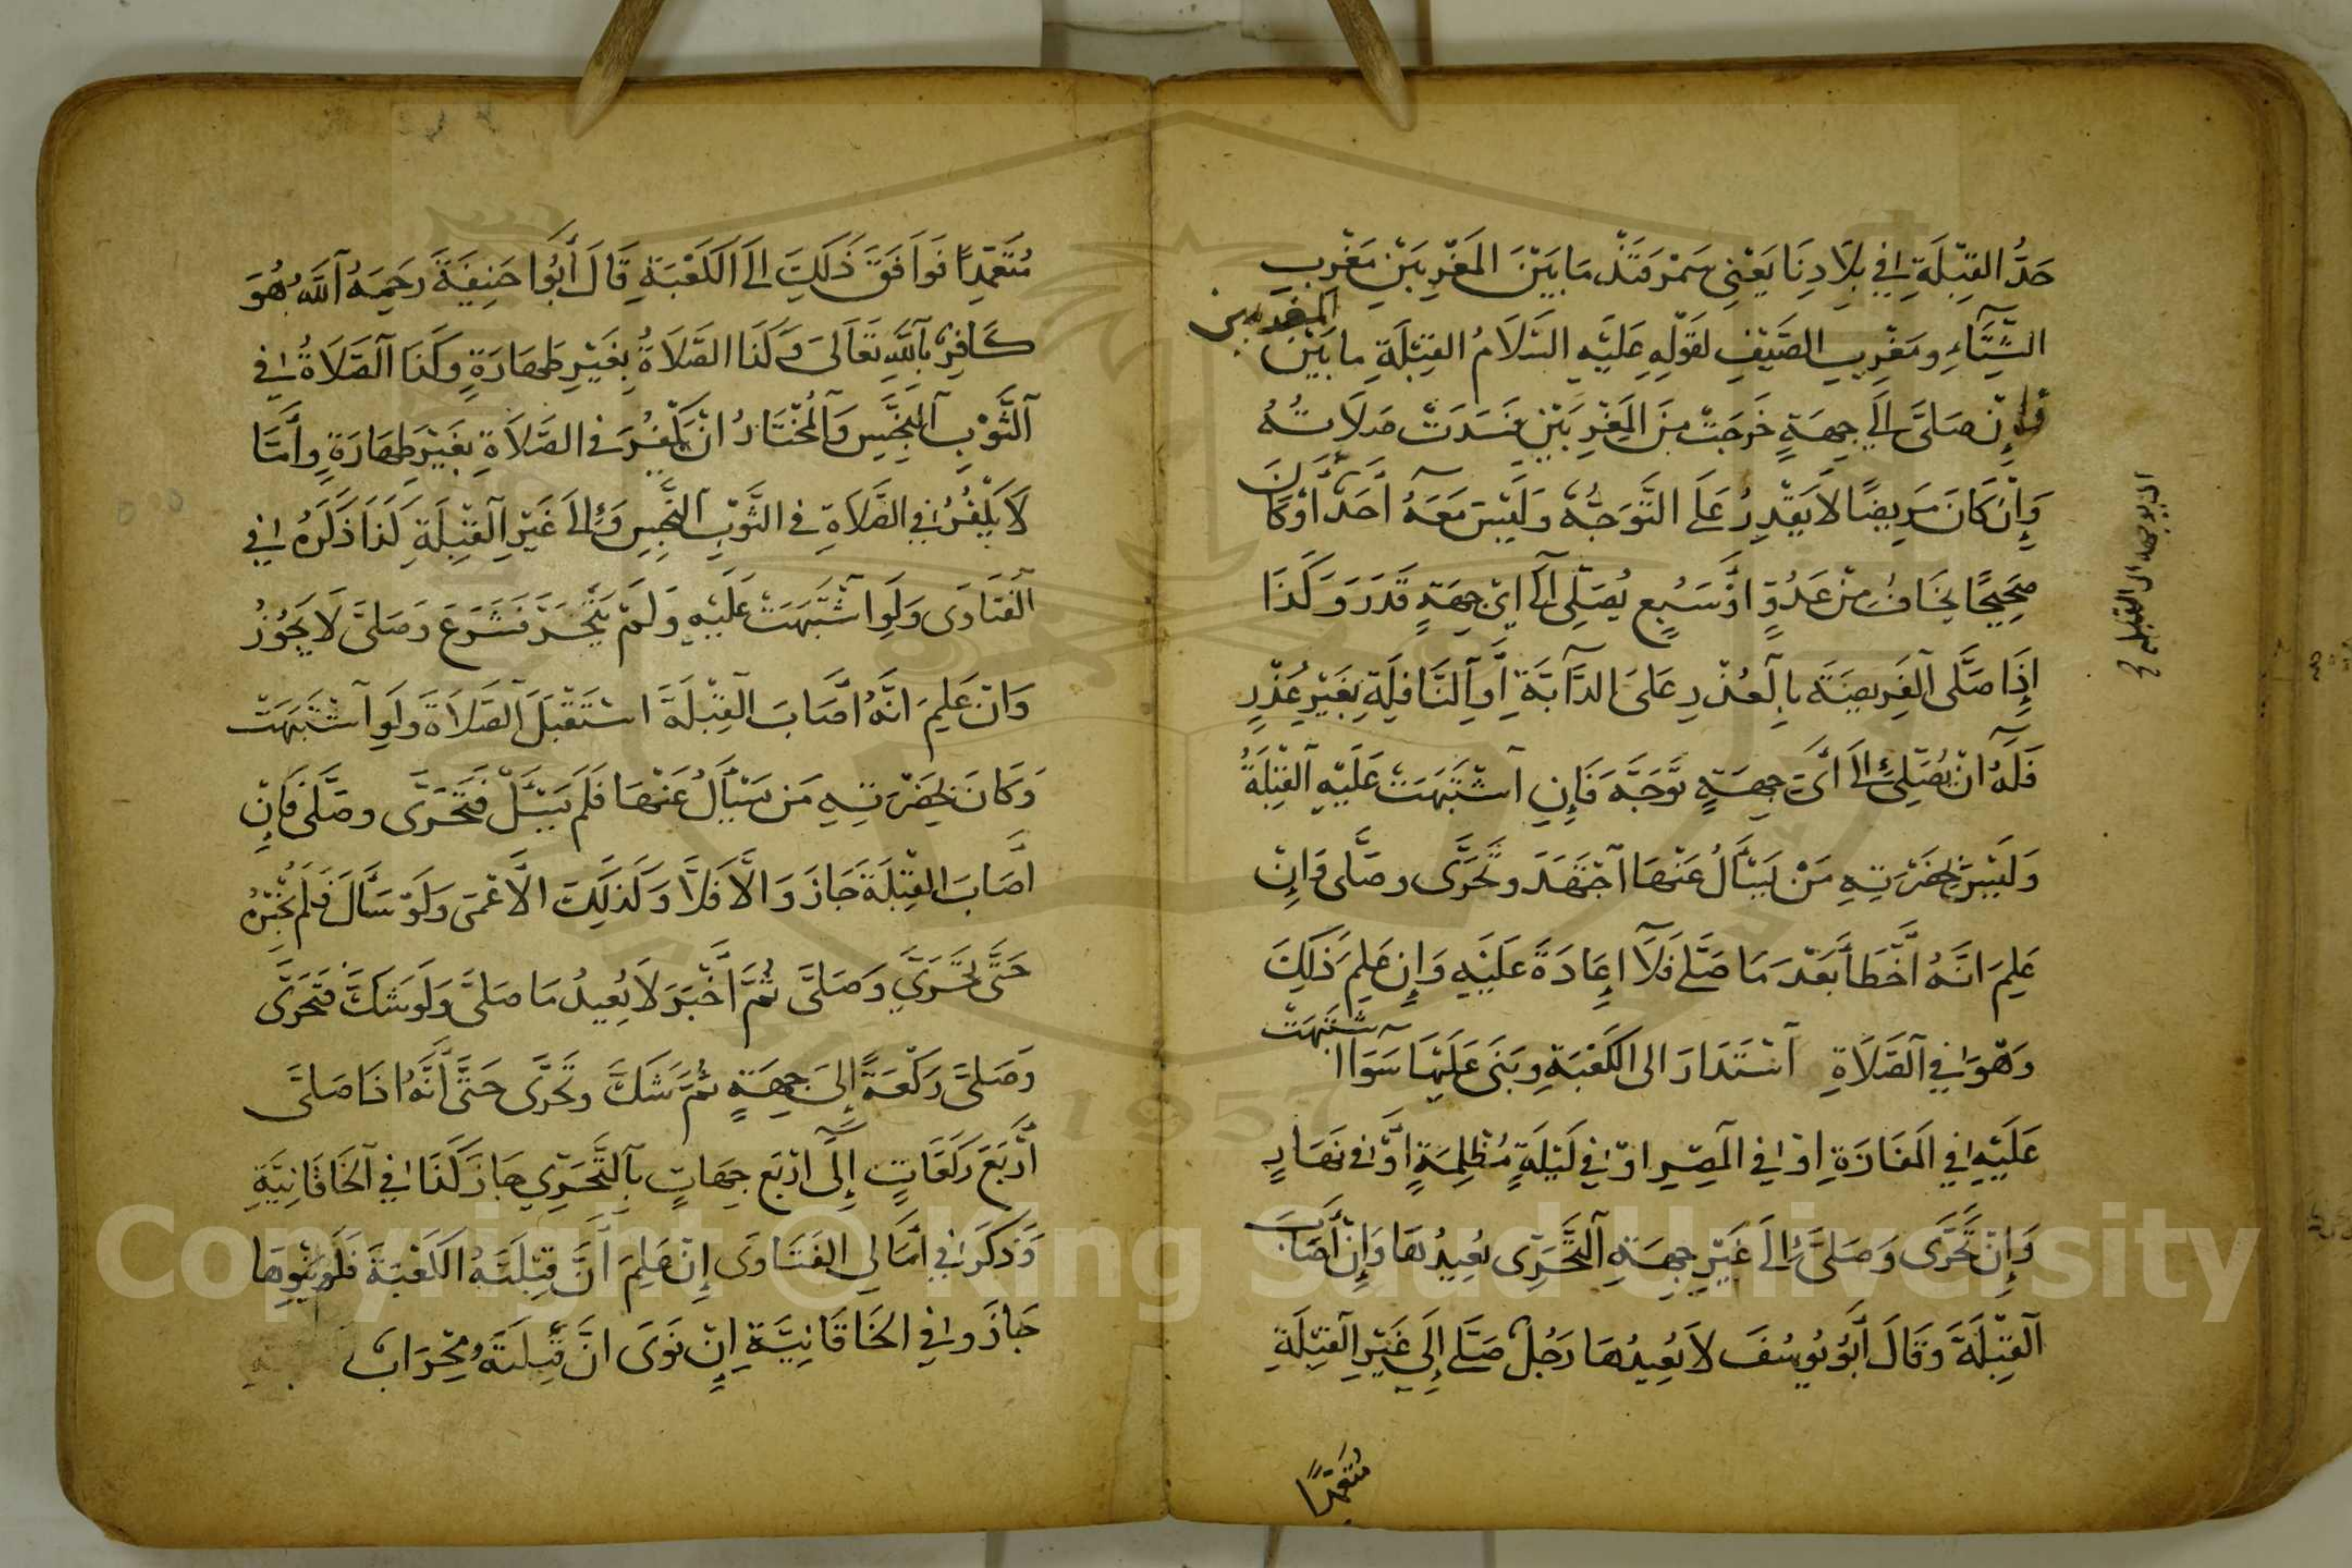 حَدُّ القِبْلَةِ فِي بِلَادِنَا يَعْنِي سَمَرْقَنْدَ مَا بَيْنَ المَغْرِبَيْنِ مَغْرِبِ
الشِّتَآءِ وَمَغْرِبِ الصَّيْفِ لِقَوْلِهِ عَلَيْهِ السَّلَامُ القِبْلَةِ ما بَيْنَ المغربين
فَإِنْ صَلَّى إِلَى جِهَةٍ خَرَجَتْ مِنَ المَغْرِبَيْنِ فَسَدَتْ صَلَاتُهُ
وَإِنْ كَانَ مَرِيضًا لَا يَقْدِرُ عَلَى التَّوَجُّهِ وَلَيْسَ مَعَهُ أَحَدٌ أَوْ كَانَ
صَحِيحًا يَخَافُ مِنْ عَدُوٍّ اَوْ سَبُعٍ يُصَلِّى اِلَى اَيِّ جِهَةٍ قَدَرَ وَكَذَا
إِذَا صَلَّى الفَرِيضَةَ بِالْعُذْرِ عَلَى الدَّآبَّةِ أَوِ النَّافِلَةِ بِغَيْرِ عُذْرٍ
فَلَهُ اَنْ يُصَلِّيَ إِلَى أَيِّ جِهَةٍ تَوَجَّهَ فَإِنِ آشْتَبَهَتْ عَلَيْهِ آلقِبْلَةُ
وَلَيْسَ بِحَضْرَتِهِ مَنْ يَسْأَلُ عَنْهَا آجْتَهَدَ وَتَحَرَّى وصَلَّى وَإِنْ
عَلِمَ اَنَّهُ أَخْطَأَ بَعْدَ مَا صَلَّى فَلَا إِعَادَةَ عَلَيْهِ وَإِنْ عَلِمَ ذَلِكَ
وَهُوَ فِي آلصَّلَاةِ آسْتَدَارَ الى الكَعْبَةِ وَبَنَى عَلَيْهَا سَوَآا آشْتَبَهَتْ
عَلَيْهِ فِي المَفَازَةِ اوْ فِي المِصْرِ اوْ فِي لَيْلَةٍ مُظْلِمَةٍ اَوْ فى نَهَارٍ
وَإِنْ تَحَرَّى وَصَلَّى إِلَى غَيْرِ جِهَةِ آلتَّحَرِّى يُعِيدُهَا وَإِنْ أَصَابَ
آلقِبْلَةَ وَقَالَ أَبُو يُوسُفَ لَا يُعِيدُهَا رَجُلٌ صَلَّى إِلَى غَيْرِ القِبْلَةِ
مُتَعَمِّدًا
مُتَعَمِّدًا فَوَافَقَ ذَلِكَ اِلَى الكَعْبَةِ قَالَ أَبُوا حَنِيفَةَ رَحِمَهُ آللَّهُ هُوَ
كَافِرٌ بِآللَّهِ تَعَالَى وَكَذَا الصَّلَاةُ بِغَيْرِ طَهَارَةٍ وَكَذَا آلصَّلَاةُ فِي
آلثَّوْبِ آلنَّجِسِ وَآلْمُخْتَارُ انْ يَكْفُرَ فى الصَّلَاةِ بِغَيْرِ طَهَارَةٍ وأَمَّا
لَا يَكْفُرُ فِي الصَّلَاةِ فى الثَّوْبِ آلنَّجِسِ وَإِلَى غَيْرِ آلْقِبْلَةِ كَذَا ذَكَرَهُ فِي
آلفَتَاوَى وَلَوِ اشْتَبَهَتْ عَلَيْهِ وَلَمْ يَتَحَرَّ فَشَرَعَ وَصَلَّى لَا يَجُوزُ
وَانْ عَلِمَ اَنَّهُ اَصَابَ آلقِبْلَةَ اسْتَقْبَلَ آلصَّلَاةَ وَلَوِ آشْتَبَهَتْ
وَكَانَ بِحَضْرَتِهِ مَن يَسْأَلُ عَنْهَا فَلَمْ يَسْأَلْ فَتَحَرَّى وصَلَّى فَإِنْ
اَصَابَ القِبْلَةَ جَازَ وَالَّا فَلَا وَكَذَلِكَ الاَعْمَى وَلَوْ سَأَلَ فَلَمْ يُخْبِرْهُ
حَتَّى تَحَرَّي وَصَلَّى ثُمَّ اَخْبَرَ لَا يُعِيدُ مَا صَلَّى وَلَو شَكَّ فَتَحَرَّى
وَصَلَّى رَكْعَةً إِلَى جِهَةٍ ثُمَّ شَكَّ وتَحَرَّى حَتَّى أَنَّهُ اذَا صَلَّى
أَرْبَعَ رَكَعَاتٍ إِلَى ارْبَعِ جِهَاتٍ بِآلتَّحَرِّي جَازَ كَذَا فِي آلخَاقَانِيَّةِ
وَذَكَرَ فِي أَمَالِي الفَتَاوَى إِنْ عَلِمَ أَنَّ قِبْلَتَهُ الكَعْبَةَ فَلَمْ يَنْوِهَا
جَازَ وفِي الخَاقَانِيَّةِ اِنْ نَوَى انَّ قِبْلَتَهُ مِحْرَابُ
Copyright © King Saud University
1957